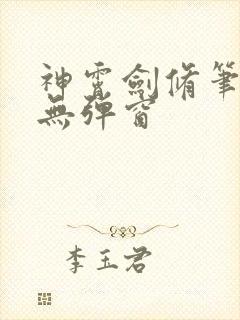 神霄劍脩筆
無彈窗
李玉君